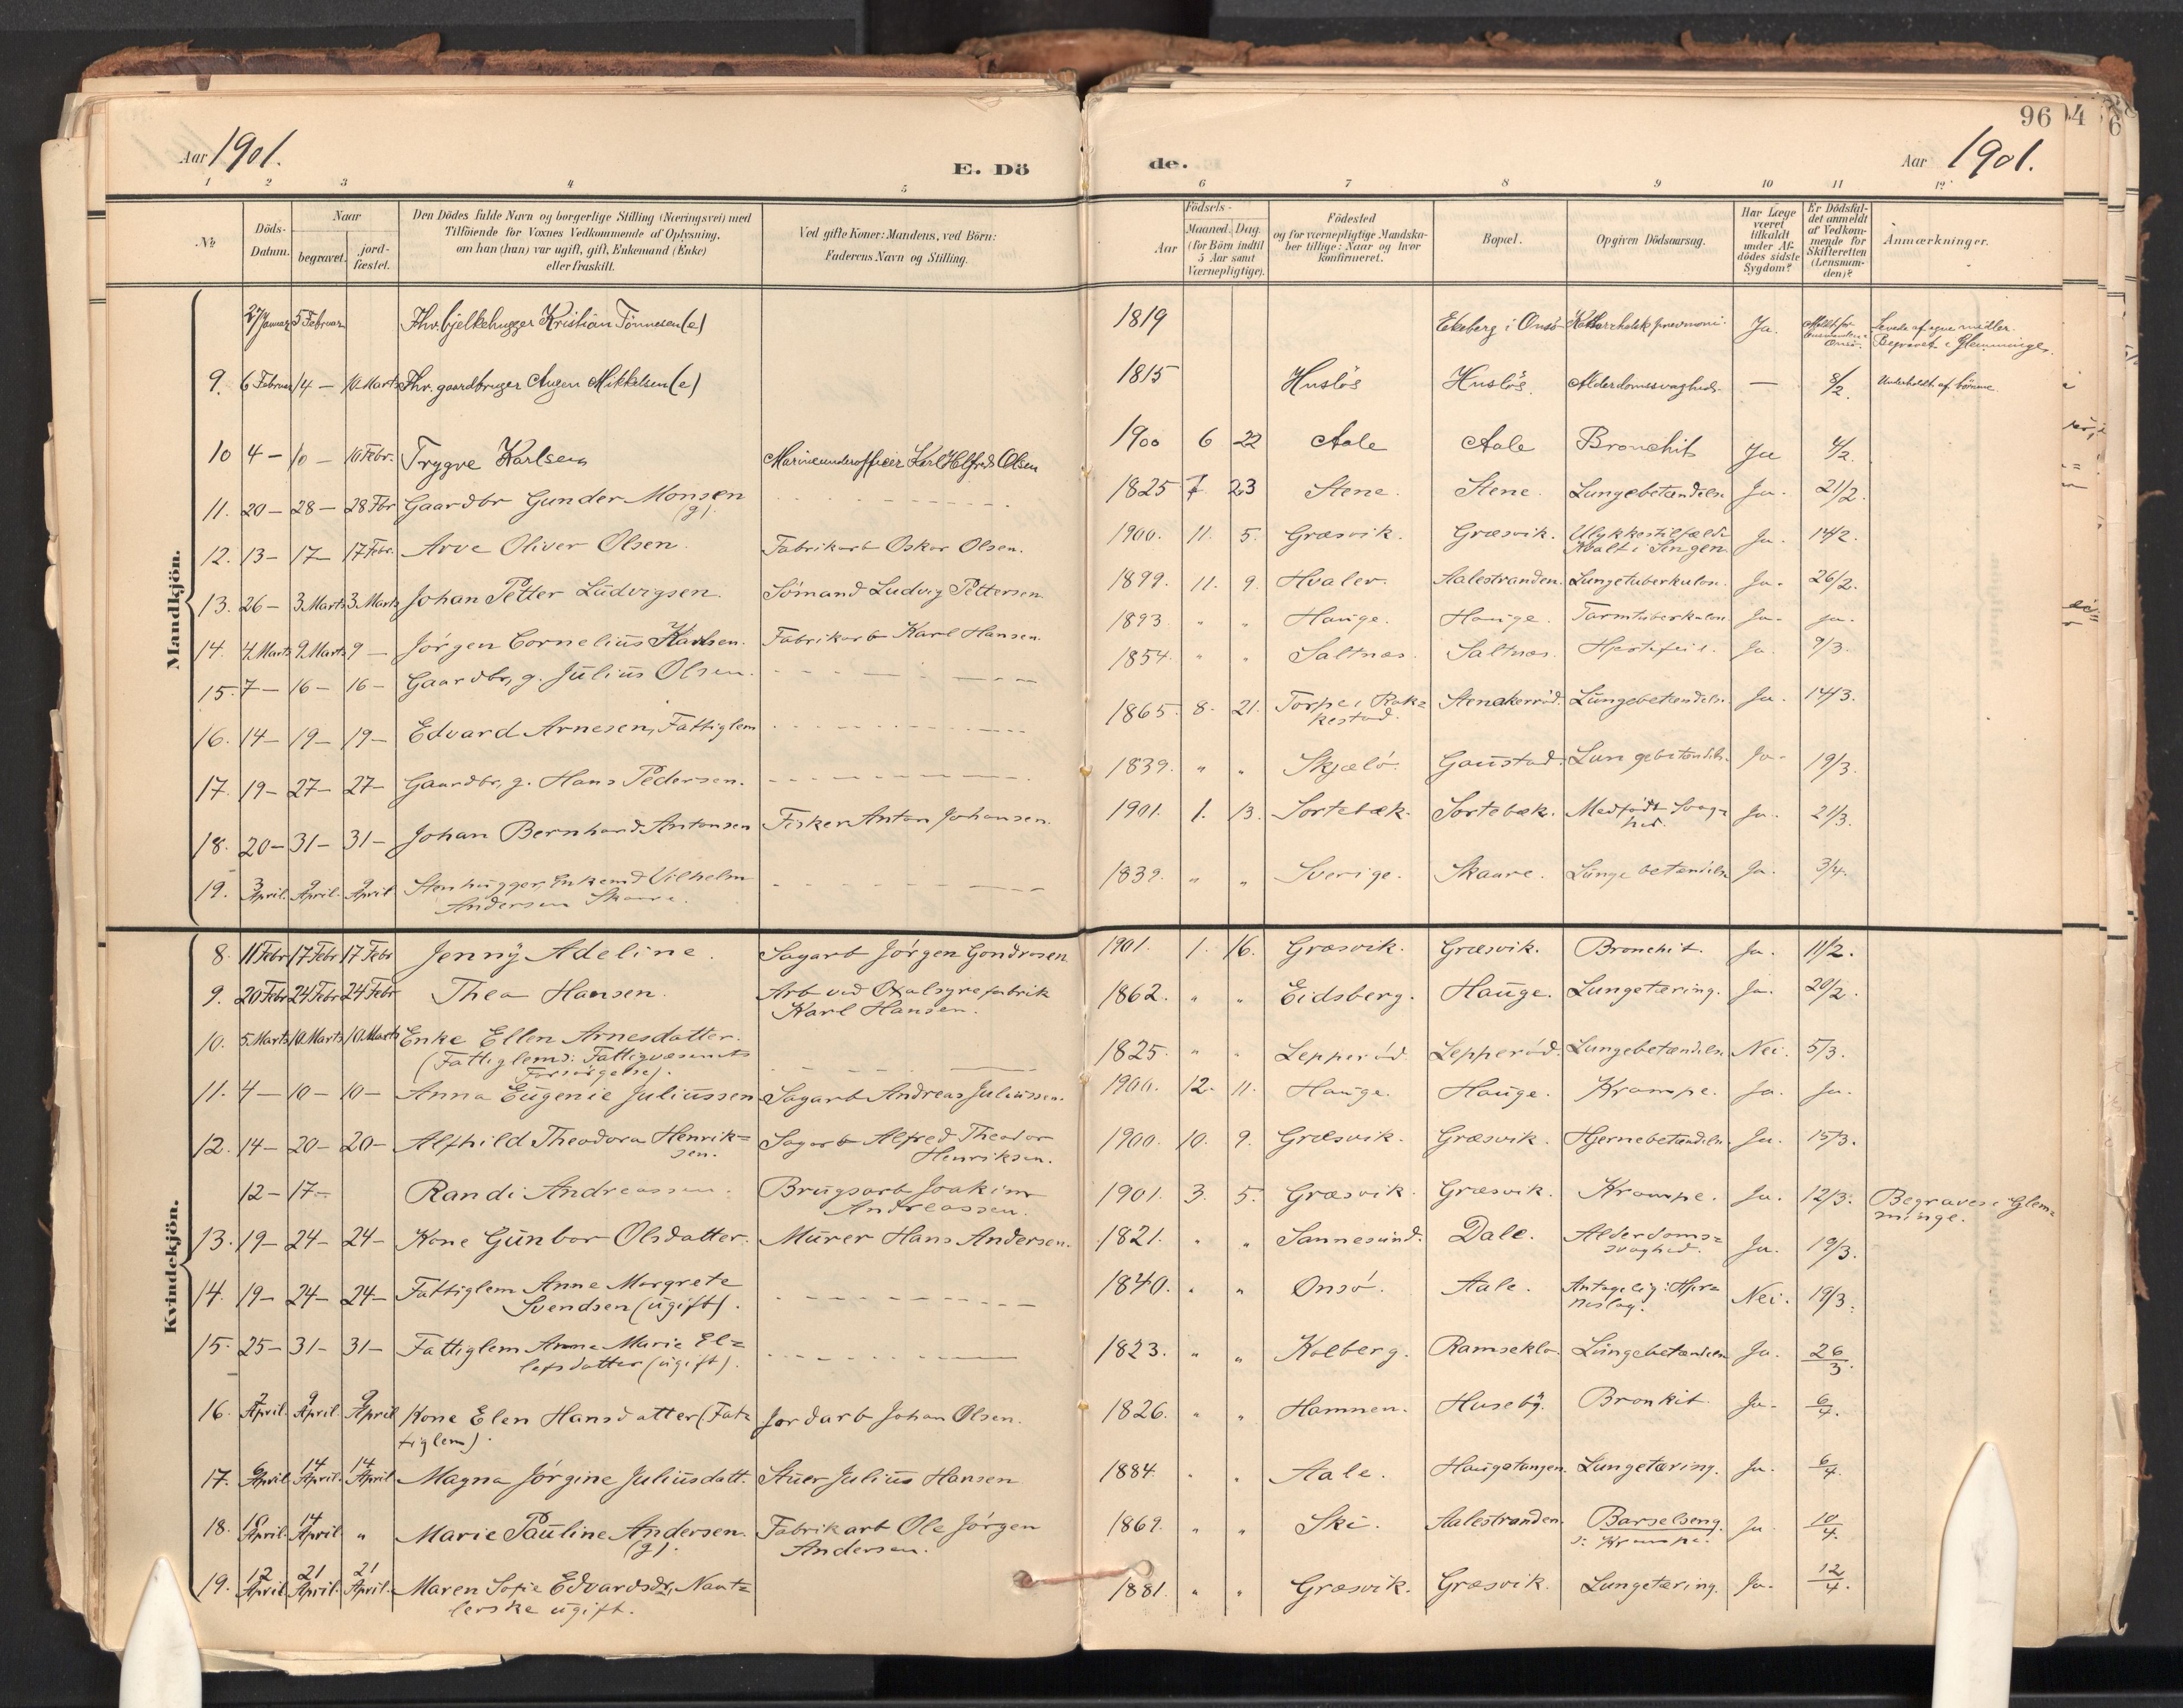 96
4
6
Aar 1901.
E. Dö
de.
Aar 1901.
1 2 3 4 5 6 7 8 9 10 11 12
No
Döds-
Datum.
Naar
begravet.
jord-
fæstet.
Den Dödes fulde Navn og borgerlige Stilling (Næringsvei) med
Tilföiende for Voxnes Vedkommende af Oplysning,
om han (hun) var ugift, gift, Enkemand (Enke)
eller fraskilt.
Ved gifte Koner: Mandens, ved Börn:
Faderens Navn og Stilling.
Födsels-
Aar
Maaned. Dag.
(for Börn indtil
5 Aar samt
Værnepligtige).
Födested
og for værnepligtige Mandska-
ber tillige: Naar og hvor
konfirmeret.
Bopæl.
Opgiven Dödsaarsag.
Har Læge
været
tilkaldt
under Af-
dödes sidste
Sygdom?
Er Dödsfal-
det anmeldt
af Vedkom-
mende for
Skifteretten
(Lensman-
den)?
Anmærkninger.
Mandkjön.
27 Januar 5 Februar Fhv. bjelkehugger Kristian Tönnesen (e) 1819 Ekeberg i Onsö Ja. Levede af egne midler.
Begravet i Glemminge.
9. 6 Februar 14 — 10 Marts Fhv. gaardbruger Augen Mikkelsen (e) 1815 Huslös Huslös. Alderdomssvaghed. — 8/2. Underholdt af börnene.
10 4 — 10 — 10 Febr. Trygve Karlsen Marineunderofficer Karl Olsen 1900 6 22 Aale Aale Bronchit Ja 4/2.
11. 20 — 28 — 28 Fbr Gaardbr Gunder Monsen
(g). 1825 7. 23 Stene. Stene. Lungebetændelse Ja. 21/2.
12. 13 — 17 — 17 Febr. Arve Oliver Olsen. Fabrikarb Oskar Olsen. 1900. 11. 5. Græsvik. Græsvik. Ulykkestilfælde
Kvalt i Sengen Ja. 14/2.
13. 26 — 3 Marts 3 Marts Johan Petter Ludvigsen. Sömand Ludvig Pettersen. 1899. 11. 9. Hvaler. Aalestranden. Lungetuberkulose. Ja. 26/2.
14. 4 Marts 9 Marts 9 — Jörgen Cornelius Karlsen. Fabrikarb Karl Hansen. 1893 " " Hauge. Hauge. Tarmtuberkulose Ja. ja.
15. 7 — 16 — 16 — Gaardbr, g. Julius Olsen. 1854. " " Saltnæs. Saltnæs. Hjertefeil. Ja. 9/3.
16. 14 — 19 — 19 — Edvard Arnesen, Fattiglem 1865. 8. 21. Torpe i Rak=
kestad. Stenakerröd. Lungebetændelse. Ja. 14/3.
17. 19 — 27 — 27 — Gaardbr, g. Hans Pedersen. 1839. " " Skjælö. Gaustad. Lungebetændelse. Ja. 19/3.
18. 20 — 31 — 31 — Johan Bernhard Antonsen Fisker Anton Johansen. 1901. 1. 13. Sortebæk. Sortebæk. Medfödt Svag=
hed. Ja. 21/3.
19. 3 April. 9 April. 9 April Stenhugger, Enkemd Vilhelm
Andersen Skaare. 1839. " " Sverige. Skaare. Lungebetændelse Ja. 3/4.
Kvindekjön.
8. 11 Febr 17 Febr 17 Febr Jenny Adeline. Sagarb Jörgen Gondrosen 1901. 1. 16. Græsvik. Græsvik. Bronchit. Ja. 11/2.
9. 20 Febr 24 Febr 24 Febr Thea Hansen. Arb ved Oxalsyrefabrik
Karl Hansen. 1862. " " Eidsberg. Hauge. Lungetæring. Ja. 20/2.
10. 5 Marts 10 Marts 10 Marts Enke Ellen Arnesdatter.
(Fattiglem: Fattigvæsenets
Forsörgelse). 1825. " " Lepperöd. Lepperöd. Lungebetændelse. Nei. 5/3.
11. 4 — 10 — 10 — Anna Eugenie Juliussen Sagarb Andreas Juliussen. 1900. 12. 11. Hauge. Hauge. Krampe. Ja. Ja.
12. 14 — 20 — 20 — Alfhild Theodora Henrik=
sen. Sagarb Alfred Theodor
Henriksen. 1900. 10. 9. Græsvik. Græsvik. Hjernebetændelse. Ja. 15/3.
12 — 17 — Randi Andreassen. Brugsarb Joakim
Andreassen. 1901. 3. 5. Græsvik. Græsvik. Krampe. Ja. 12/3. Begraves i Glem=
minge.
13. 19 — 24 — 24 — Kone Gunbor Olsdatter. Murer Hans Andersen. 1821. " " Sannesund. Dale. Alderdoms=
svaghed. Ja. 19/3.
14. 19 — 24 — 24 — Fattiglem Anne Margrete
Svendsen (ugift). 1840. " " Onsö. Aale. Antagelig: Hjer=
neslag. Nei. 19/3.
15. 25 — 31 — 31 — Fattiglem Anne Marie El=
lefsdatter (ugift). 1823. " " Kolberg. Ramseklo. Lungebetændelse Ja. 26/3.
16. 2 April. 9 April. 9 April Kone Elen Hansdatter (Fat=
tiglem). Jordarb Johan Olsen. 1826. " " Hamnen. Huseby. Bronkit. Ja. 6/4.
17. 6 April. 14 April. 14 April Magna Jörgine Juliusdatt. Stuer Julius Hansen 1884. " " Aale. Haugetangen. Lungetæring. Ja. 6/4.
18. 10 April. 14 April " Marie Pauline Andersen.
(g). Fabrikarb Ole Jörgen
Andersen. 1869. " " Ski. Aalestranden. Barselseng.
ɔ: Krampe. Ja 10/4.
19. 12 April. 21 April. 21 April. Maren Sofie Edvardsdr,
ugift. 1881. " " Græsvik. Græsvik. Lungetæring. Ja. 12/4.